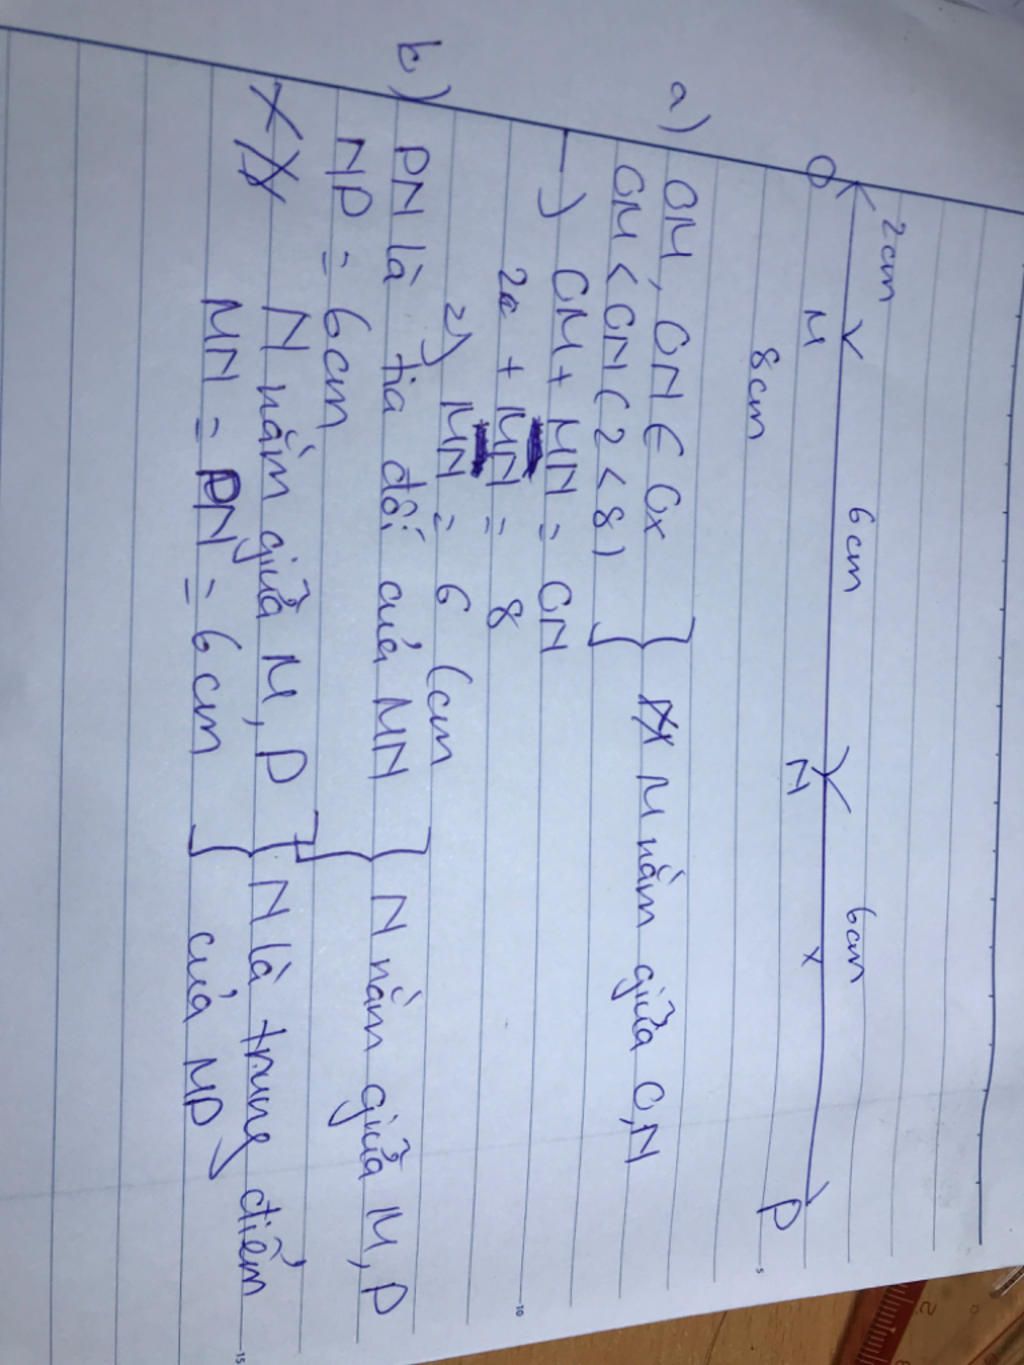 2cm 6cm 6cm
O M N x P
8cm
a) OM, ON ∈ Ox
OM < ON (2 < 8) } M nằm giữa O, N
-) OM + MN = ON
2 + MN = 8
2) MN = 6 (cm
b) PN là tia đối của MN
NP = 6cm } N nằm giữa M, P
N nằm giữa M, P } N là trung điểm
MN = PN = 6cm của MP
5
10
15